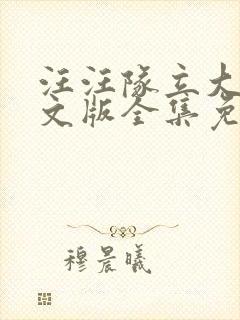 汪汪队立大
文版全集免
穆晨曦